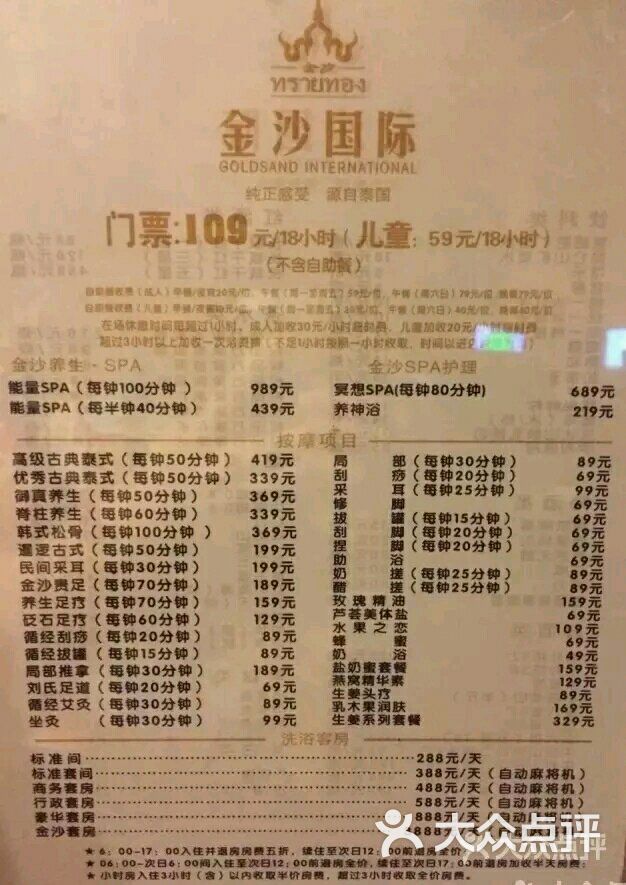 金沙
ทรายทอง
金沙国际
GOLDSAND INTERNATIONAL
纯正感受 源自泰国
门票:109元/18小时(儿童:59元/18小时)
(不含自助餐)
在场休息时间每超过1小时,成人加收30元/小时超时费,儿童加收20元/小时超时费
超过3小时以上加收一次浴资费(不足1小时按照一小时收取,
金沙养生-SPA
能量SPA(每钟100分钟) 989元
能量SPA(每半钟40分钟) 439元
金沙SPA护理
冥想SPA(每钟80分钟) 689元
养神浴 219元
按摩项目
高级古典泰式(每钟50分钟) 419元
优秀古典泰式(每钟50分钟) 339元
御真养生(每钟50分钟) 369元
脊柱养生(每钟60分钟) 339元
韩式松骨(每钟100分钟) 369元
暹逻古式(每钟50分钟) 199元
民间采耳(每钟30分钟) 199元
金沙贵足(每钟70分钟) 189元
养生足疗(每钟70分钟) 159元
砭石足疗(每钟60分钟) 129元
循经刮痧(每钟20分钟) 89元
循经拔罐(每钟15分钟) 89元
局部推拿(每钟30分钟) 189元
刘氏足道(每钟20分钟) 69元
循经艾灸(每钟30分钟) 89元
坐灸(每钟30分钟) 99元
局部(每钟30分钟) 89元
刮痧(每钟20分钟) 69元
采耳(每钟25分钟) 99元
修脚 69元
拔罐(每钟15分钟) 69元
刮脚(每钟20分钟) 69元
捏脚(每钟20分钟) 69元
助浴 69元
奶搓(每钟25分钟) 89元
醋搓(每钟25分钟) 89元
玫瑰精油 159元
芦荟美体盐 69元
水果之恋 109元
蜂蜜 69元
奶浴 49元
盐奶蜜套餐 159元
燕窝精华素 129元
生姜头疗 89元
乳木果润肤 169元
生姜系列套餐 329元
洗浴客房
标准间 288元/天
标准套间 388元/天(自动麻将机)
商务套房 488元/天(自动麻将机)
行政套房 588元/天(自动麻将机)
豪华套房 888元/天(自动麻将机)
金沙套房 888元/天(自动麻将机)
★6:00-17:00入住并退房房费五折,续住至次日12:00前退房全价
★06:00-次日6:00间入住至次日12:00前退房全价,续住至次日17:00前退房加收半天房费
★小时房入住3小时(含)以内收取半价房费,超过3小时收取全价房费
大众点评